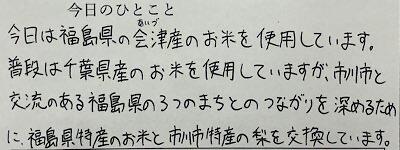 今日のひとこと
今日は福島県の会津産のお米を使用しています。
普段は千葉県産のお米を使用していますが、市川市と
交流のある福島県の3つのまちとのつながりを深めるため
に、福島県特産のお米と市川市特産の梨を交換しています。